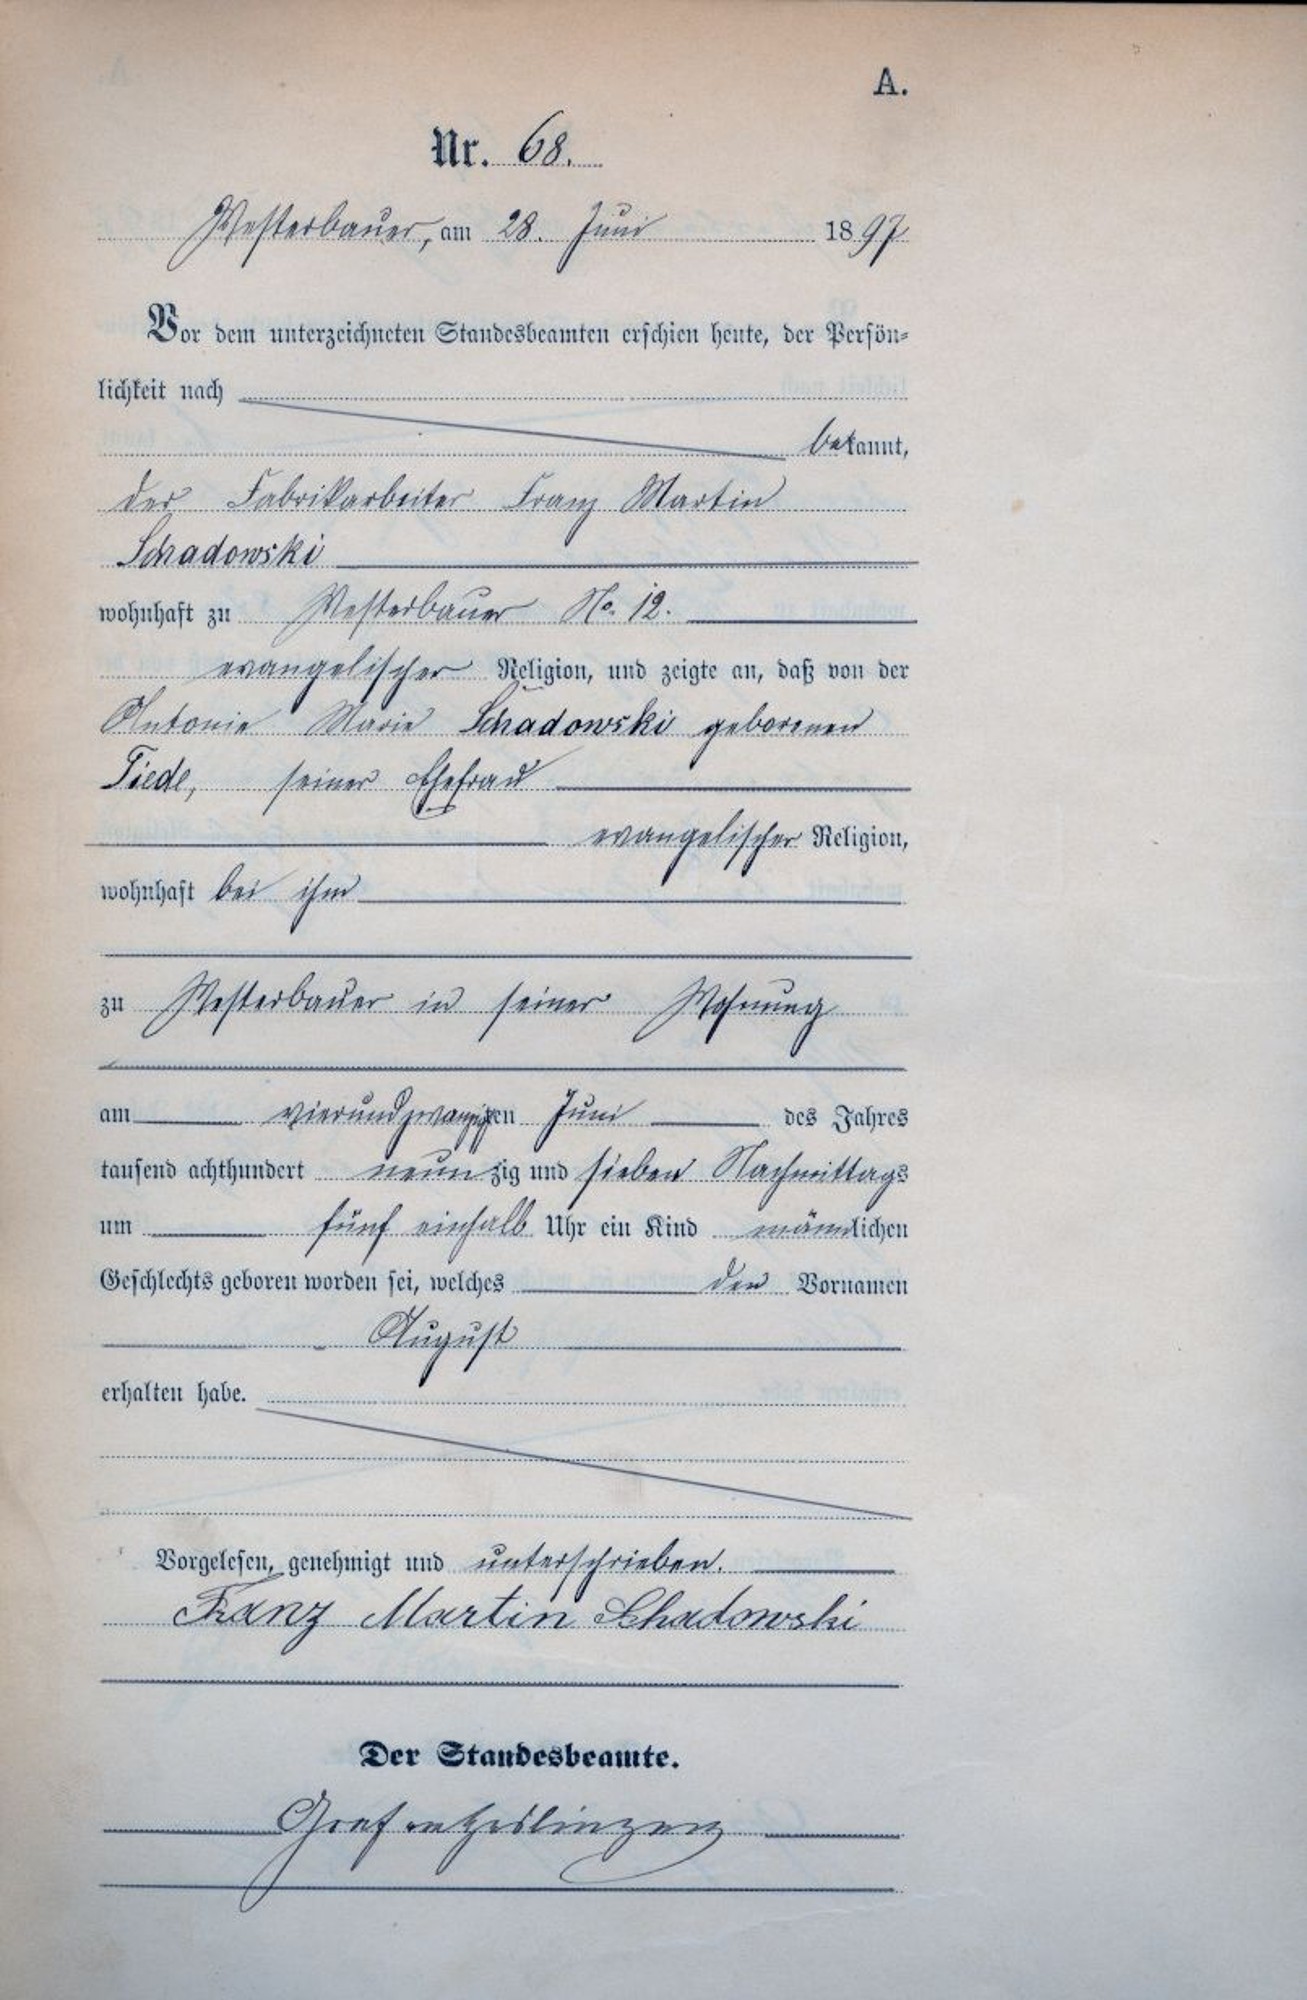 A.
Nr. 68.
Westerbauer, am 28. Juni 1897
Vor dem unterzeichneten Standesbeamten erschien heute, der Persön-
lichkeit nach
bekannt,
der Fabrikarbeiter Franz Martin
Schadowski
wohnhaft zu Westerbauer No. 12.
evangelischer Religion, und zeigte an, daß von der
Antonie Marie Schadowski geborenen
Tiede, seiner Ehefrau
evangelischer Religion,
wohnhaft bei ihm
zu Westerbauer in seiner Wohnung
am vierundzwanzigsten Juni des Jahres
tausend achthundert neunzig und sieben Nachmittags
um fünf einhalb Uhr ein Kind männlichen
Geschlechts geboren worden sei, welches den Vornamen
August
erhalten habe.
Vorgelesen, genehmigt und unterschrieben.
Franz Martin Schadowski
Der Standesbeamte.
Graf